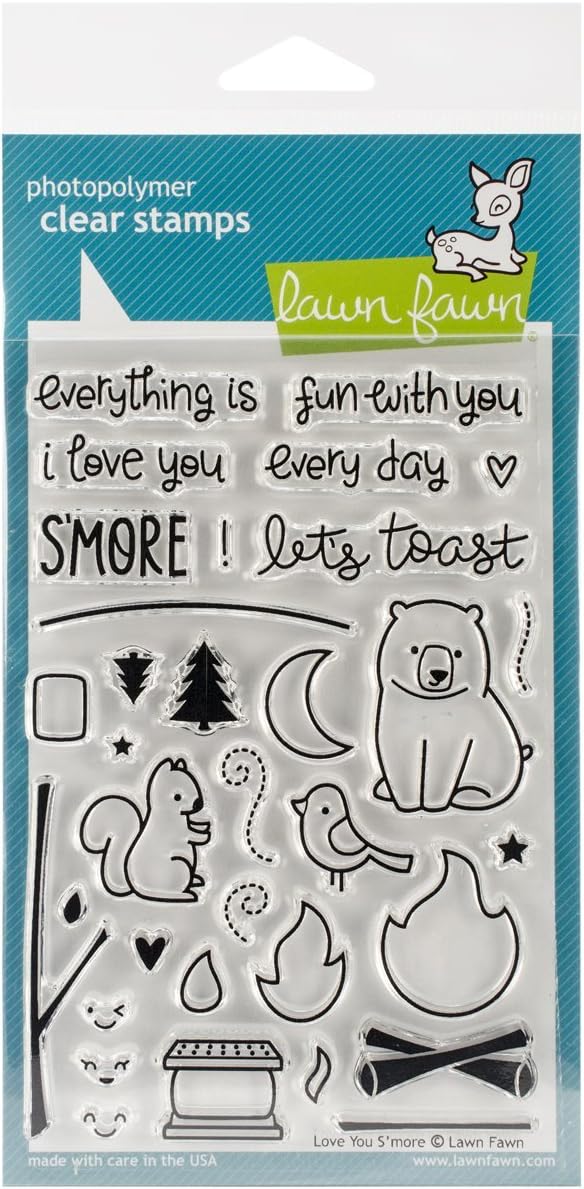 photopolymer
clear stamps
lawn fawn
everything is fun with you
i love you every day
S'MORE ! let's toast
Love You S'more © Lawn Fawn
made with care in the USA www.lawnfawn.com